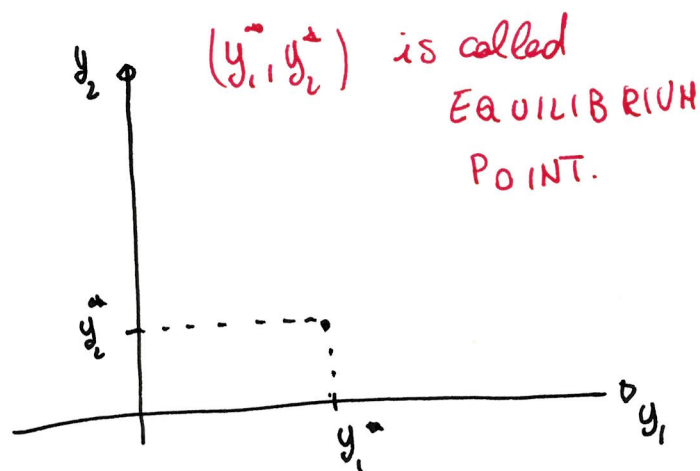 (y₁*, y₂*) is called
EQUILIBRIUM
POINT.
y₂
y₂*
y₁*
y₁